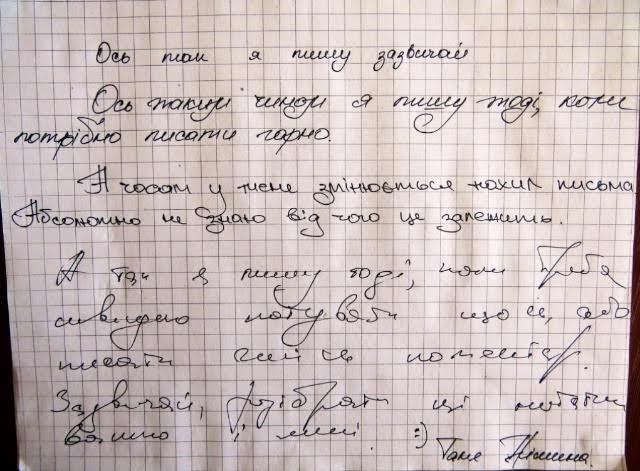 Ось так я пишу зазвичай
Ось таким чином я пишу тоді, коли
потрібно писати гарно.
А часом у мене змінюється нахил письма
Абсолютно не знаю від чого це залежить.
А так я пишу тоді, коли треба
швидко нотувати щось, або
писати свій конспект.
Зазвичай, розібрати ці нотатки
важко і мені. :)
Таня